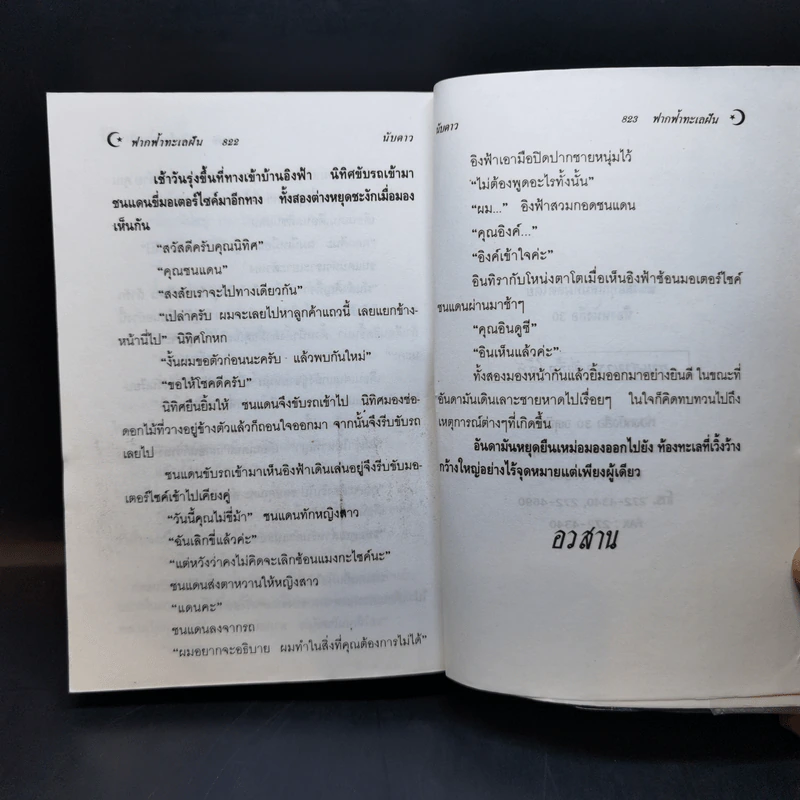 ฟากฟ้าทะเลฝัน 822 นับดาว
เช้าวันรุ่งขึ้นที่ทางเข้าบ้านอิงฟ้า นิทิศขับรถเข้ามา
ชนแดนขี่มอเตอร์ไซค์มาอีกทาง ทั้งสองต่างหยุดชะงักเมื่อมอง
เห็นกัน
“สวัสดีครับคุณนิทิศ”
“คุณชนแดน”
“สงสัยเราจะไปทางเดียวกัน”
“เปล่าครับ ผมจะเลยไปหาลูกค้าแถวนี้ เลยแยกข้าง-
หน้านี้ไป” นิทิศโกหก
“งั้นผมขอตัวก่อนนะครับ แล้วพบกันใหม่”
“ขอให้โชคดีครับ”
นิทิศยืนยิ้มให้ ชนแดนจึงขับรถเข้าไป นิทิศมองช่อ-
ดอกไม้ที่วางอยู่ข้างตัวแล้วก็ถอนใจออกมา จากนั้นจึงรีบขับรถ
เลยไป
ชนแดนขับรถเข้ามาเห็นอิงฟ้าเดินเล่นอยู่จึงรีบขับมอ-
เตอร์ไซค์เข้าไปเคียงคู่
“วันนี้คุณไม่ขี่ม้า” ชนแดนทักหญิงสาว
“ฉันเลิกขี่แล้วค่ะ”
“แต่หวังว่าคงไม่คิดจะเลิกซ้อนแมงกะไซค์นะ”
ชนแดนส่งตาหวานให้หญิงสาว
“แดนคะ”
ชนแดนลงจากรถ
“ผมอยากจะอธิบาย ผมทำในสิ่งที่คุณต้องการไม่ได้”
นับดาว 823 ฟากฟ้าทะเลฝัน
อิงฟ้าเอามือปิดปากชายหนุ่มไว้
“ไม่ต้องพูดอะไรทั้งนั้น”
“ผม...” อิงฟ้าสวมกอดชนแดน
“คุณอิงค์...”
“อิงค์เข้าใจค่ะ”
อินทิรากับโหน่งตาโตเมื่อเห็นอิงฟ้าซ้อนมอเตอร์ไซค์
ชนแดนผ่านมาช้าๆ
“คุณอินดูซี”
“อินเห็นแล้วค่ะ”
ทั้งสองมองหน้ากันแล้วยิ้มออกมาอย่างยินดี ในขณะที่
อันดามันเดินเลาะชายหาดไปเรื่อยๆ ในใจก็คิดทบทวนไปถึง
เหตุการณ์ต่างๆที่เกิดขึ้น
อันดามันหยุดยืนเหม่อมองออกไปยัง ท้องทะเลที่เวิ้งว้าง
กว้างใหญ่อย่างไร้จุดหมายแต่เพียงผู้เดียว
อวสาน